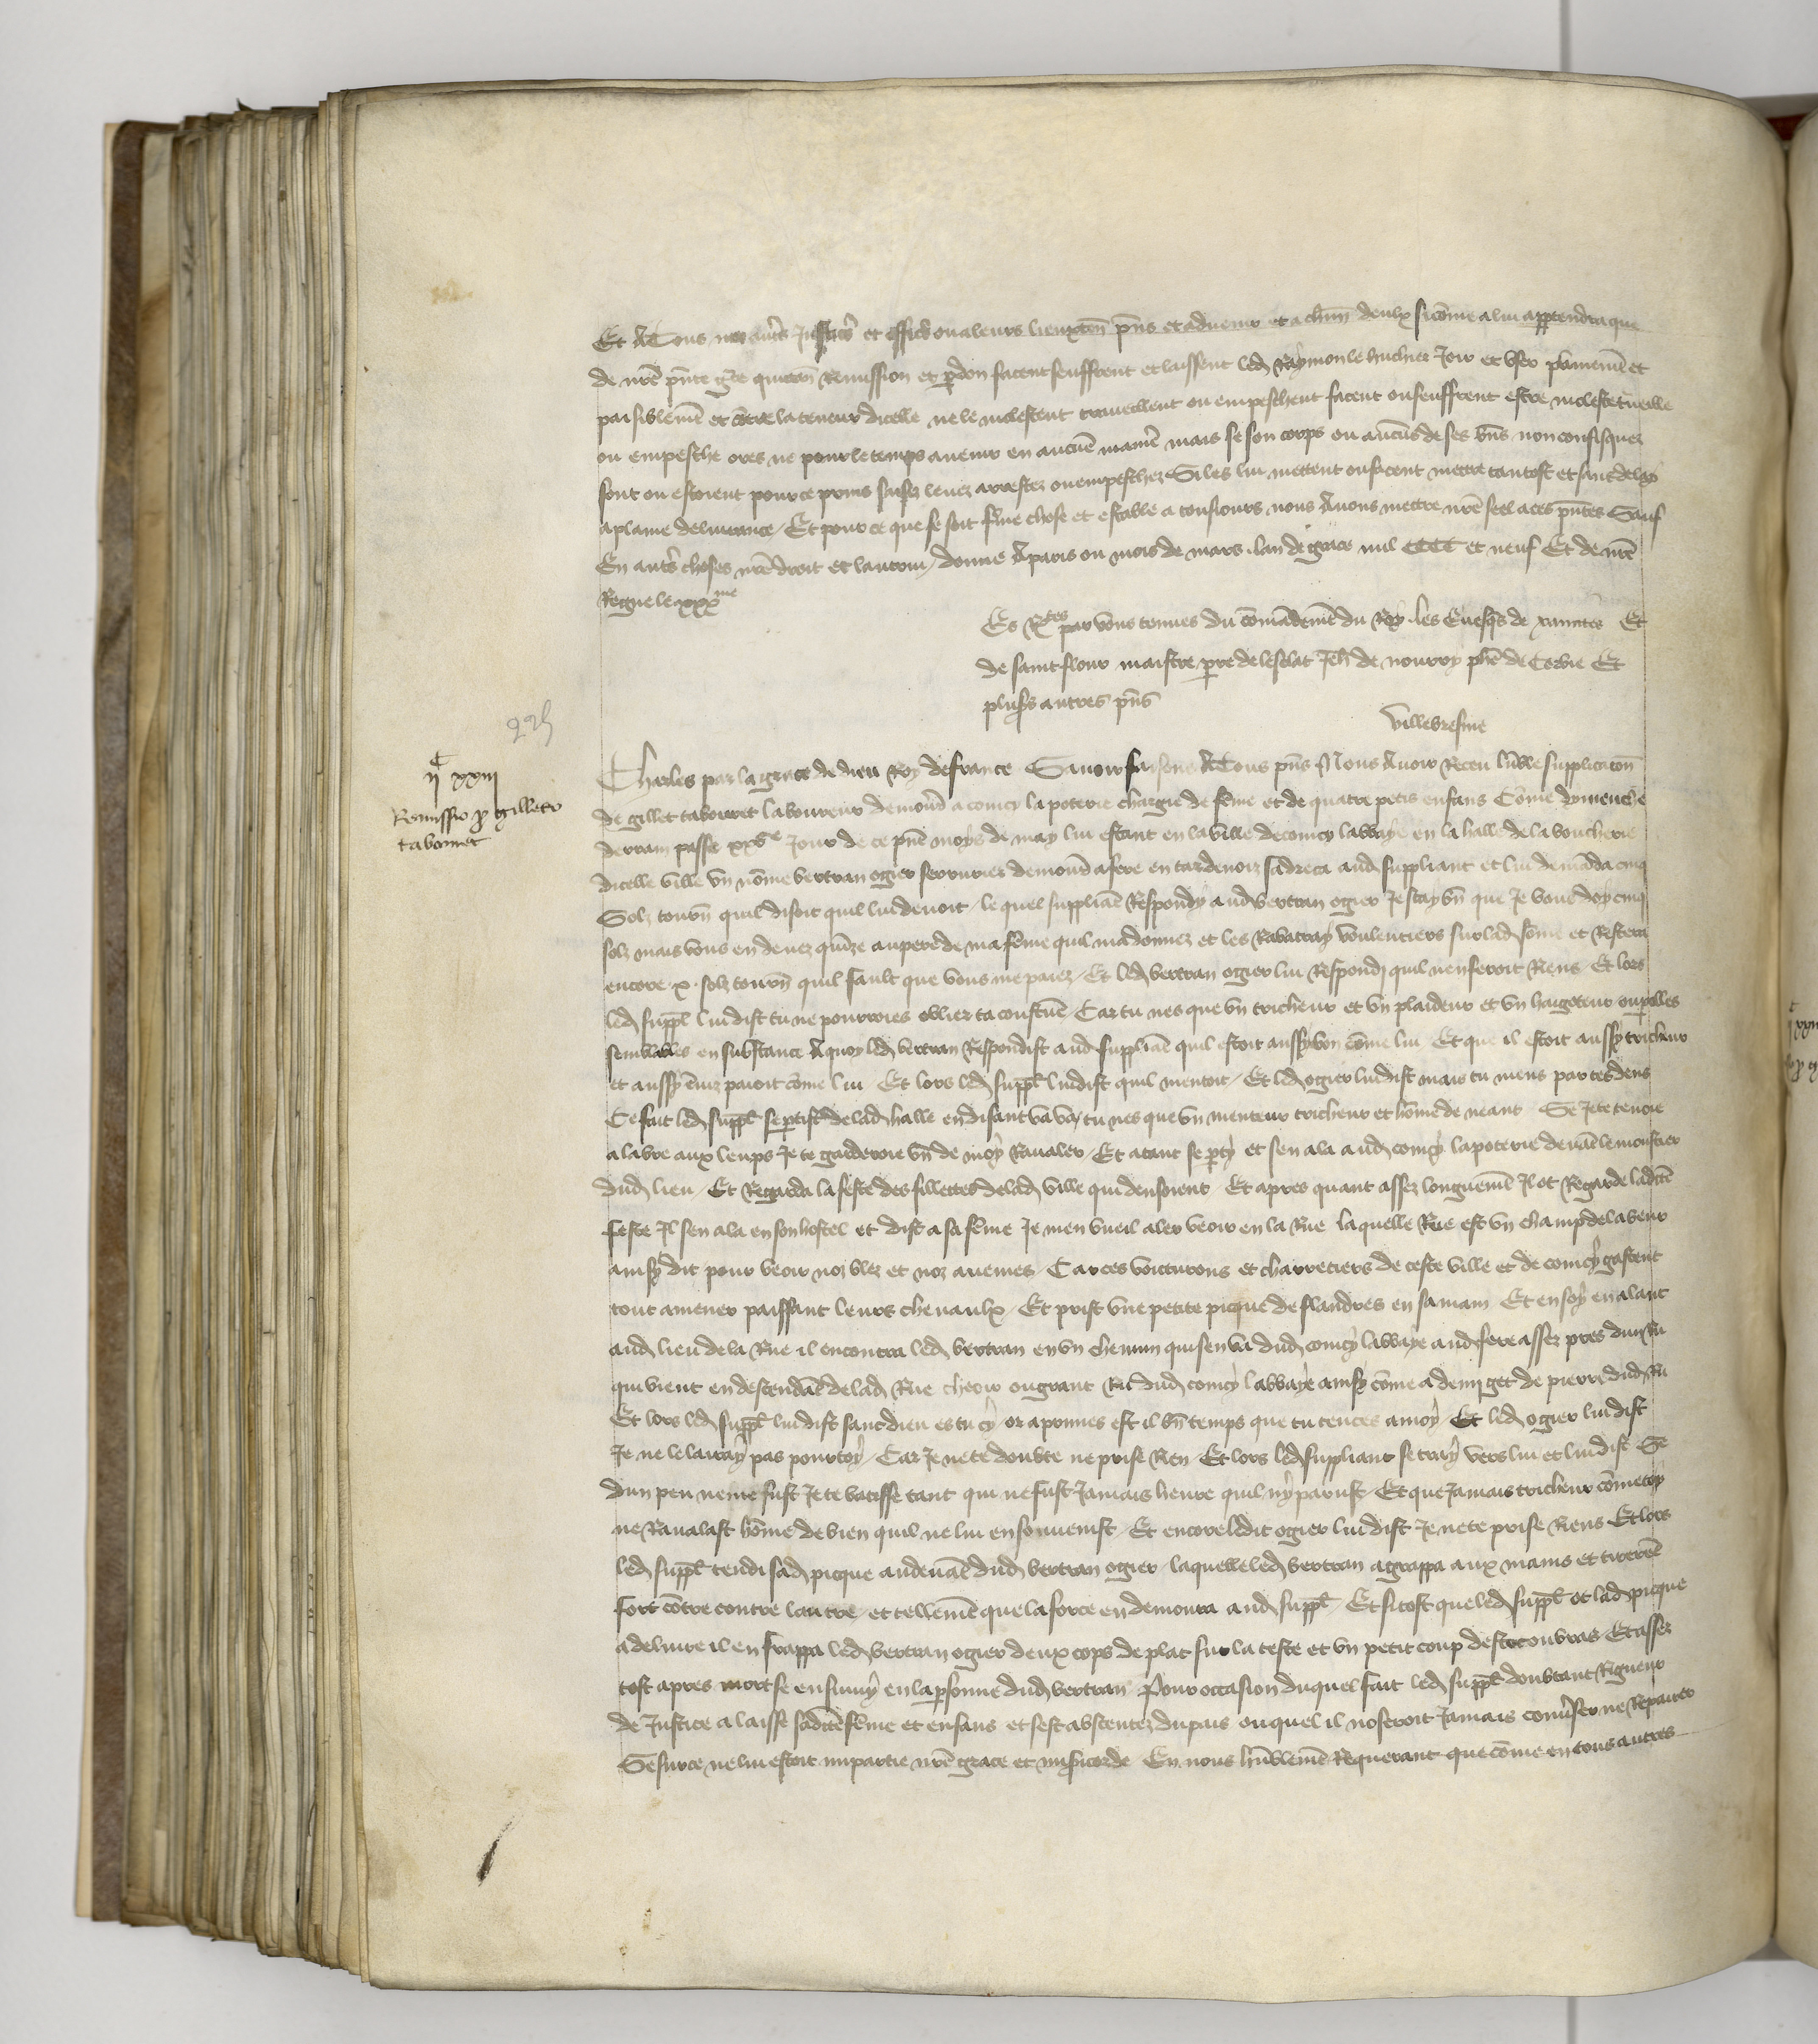 Et A Tous noz autrs Justiciers et officiers ou a leurs lieuxten pns et advenir et a chun deulx si come a lui appartendra que
de nre pnte gce quictan Remission et pdon facent seuffrent et laissent led Raymon le huchier Joir et user plainemt et
paisiblemt et contre la teneur dicelle ne le molestent travellent ou empeschent facent ou seuffrent estre moleste travelle
ou empesche ores ne pour le temps avenir en aucune maniere mais se son corps ou aucuns de ses bns non confisquez
sont ou estoient pour ce prins saisiz levez arrestez ou empeschez Si les lui mettent ou facent mettre tantost et sans delay
a plaine delivrance / Et pour ce que se soit ferme chose et estable a tousiours nous Avons mettre nre seel a ces pntes Sauf
En autrs choses nre droit et lautruy / donne A paris ou mois de mars lan de grace mil CCCC et neuf Et de nre
Regne le xxx me
Es Rqtes par vous tenues du comandemt du Roy les Evesqs de xainctes Et
de saint flour maistre pre de lesclat Jeh de nourry phe de Corbie Et
plusrs autres pns
villebresme
225
IIc XXIII
Remissio p Gilleto
tabouret
Charles par la grace de dieu Roy de france Savoir faisons A Tous pns Nous Avoir Receu lumble supplicaton
de gillet tabouret laboureur demourd a coincy la poterie chargie de feme et de quatre petis enfans Come dymenche
derrain passe xxve Jour de ce pnt moys de may lui estant en la ville de coincy labbaye en la halle de la boucherie
dicelle ville un nome bertran ogier serrurier demourd a fere en tardenoiz sadreca aud suppliant et lui demada cinq
Solz tourn quil disoit quil lui devoit / lequel suppliant Respondy aud bertran ogier Je scay bn que Je vous doy cinq
solz mais vous en devez quize au pere de ma feme quil ma donnez et les Rabatray voulentiers sur lad some et Restera
encore x solz tourn quil fault que vous me paiez / Et led bertran ogier lui Respondi quil nen feroit Riens / Et lors
led suppl lui dist tu ne pourroies oblier ta coustume / Car tu nes que un tricheur et un plaideur et un hargoteur ou polles
semblables en substance A quoy led bertran Respondist aud suppliant quil estoit aussy bon come lui Et que il estoit aussy tricheur
et aussy enviz paioit come lui / Et lors led suppl lui dist quil mentoit / Et led ogier lui dist mais tu mens par tes dens
Ce fait led suppl se ptist de lad halle en disant va va / tu nes que un menteur tricheur et home de neant Se Je te tenoie
a labre aux leups Je te garderoie bn de moy Ravaler / Et atant se pty et sen ala aud coincy la poterie devant le monstier
dud lieu / Et Regarda la feste des fillettes de lad ville qui densoient / Et apres quant assez longuemt Il ot Regarde ladicte
feste Il sen ala en son hostel et dist a sa feme Je men vueil aler veoir en la Rue laquelle Rue est un champ de labeur
ainsy dit pour veoir noz blez et noz avenes / Car ces voicturons et charretiers de ceste ville et de coincy gastent
tout a mener paissant leurs chevaulx / Et prist une petite picque de flandres en sa main Et en soy en alant
aud lieu de la Rue il encontra led bertran en un chemin qui sen va dud coincy labbaye aud fere assez pres dun Ru
qui vient en descendat de lad Rue cheoir ou grant Ru dud coincy labbaye ainsy come a demi get de pierre dud Ru
Et lors led suppl lui dist sanc dieu es tu cy / or a primes est il bn temps que tu tences a moy / Et led ogier lui dist
Je ne le lairay pas pour toy / Car Je ne te doubte ne prise Rien / Et lors led suppliant se tray vers lui et lui dist Se
dun peu ne me fust Je te batisse tant qui ne fust Jamais heure quil ny parust / Et que Jamais tricheur come toy
ne Ravalast home de bien quil ne lui en souvenist / Et encore ledit ogier lui dist Je ne te prise Riens Et lors
led suppl tendi sad picque au devat dud bertran ogier laquelle led bertran agrappa aux mains et tirerent
fort contre contre lautre / et tellemt que la force en demoura aud suppl / Et si tost que led suppl ot lad picque
a delivre il en frappa led bertran ogier deux cops de plat sur la teste et un petit coup destoc ou bras Et assez
tost apres mort se ensuivy en la psonne dud bertran / Pour occasion duquel fait led suppl doubtant Rigueur
de Justice a laisse sadicte feme et enfans et sest absentez du pais ouquel il noseroit Jamais convser ne Repairer
Se sur ce ne lui estoit impartie nre grace et misicorde En nous humblemt Requerant que come en tous autres